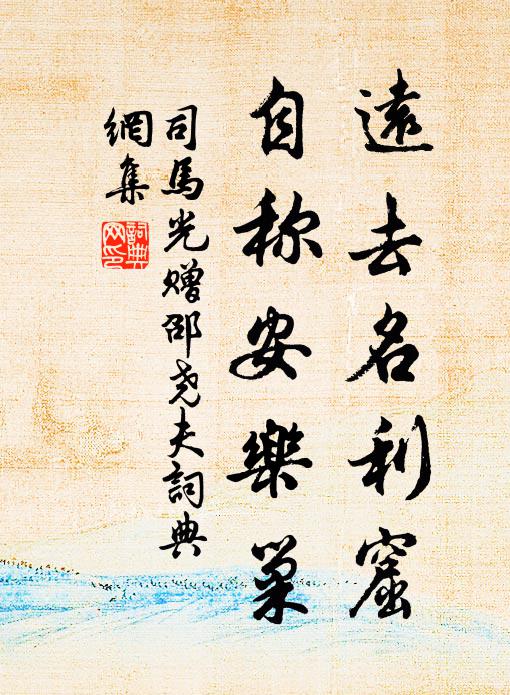 遠去名利窟
自称安樂巢
司馬光贈邵尧夫詞典
網集
詞典
网印